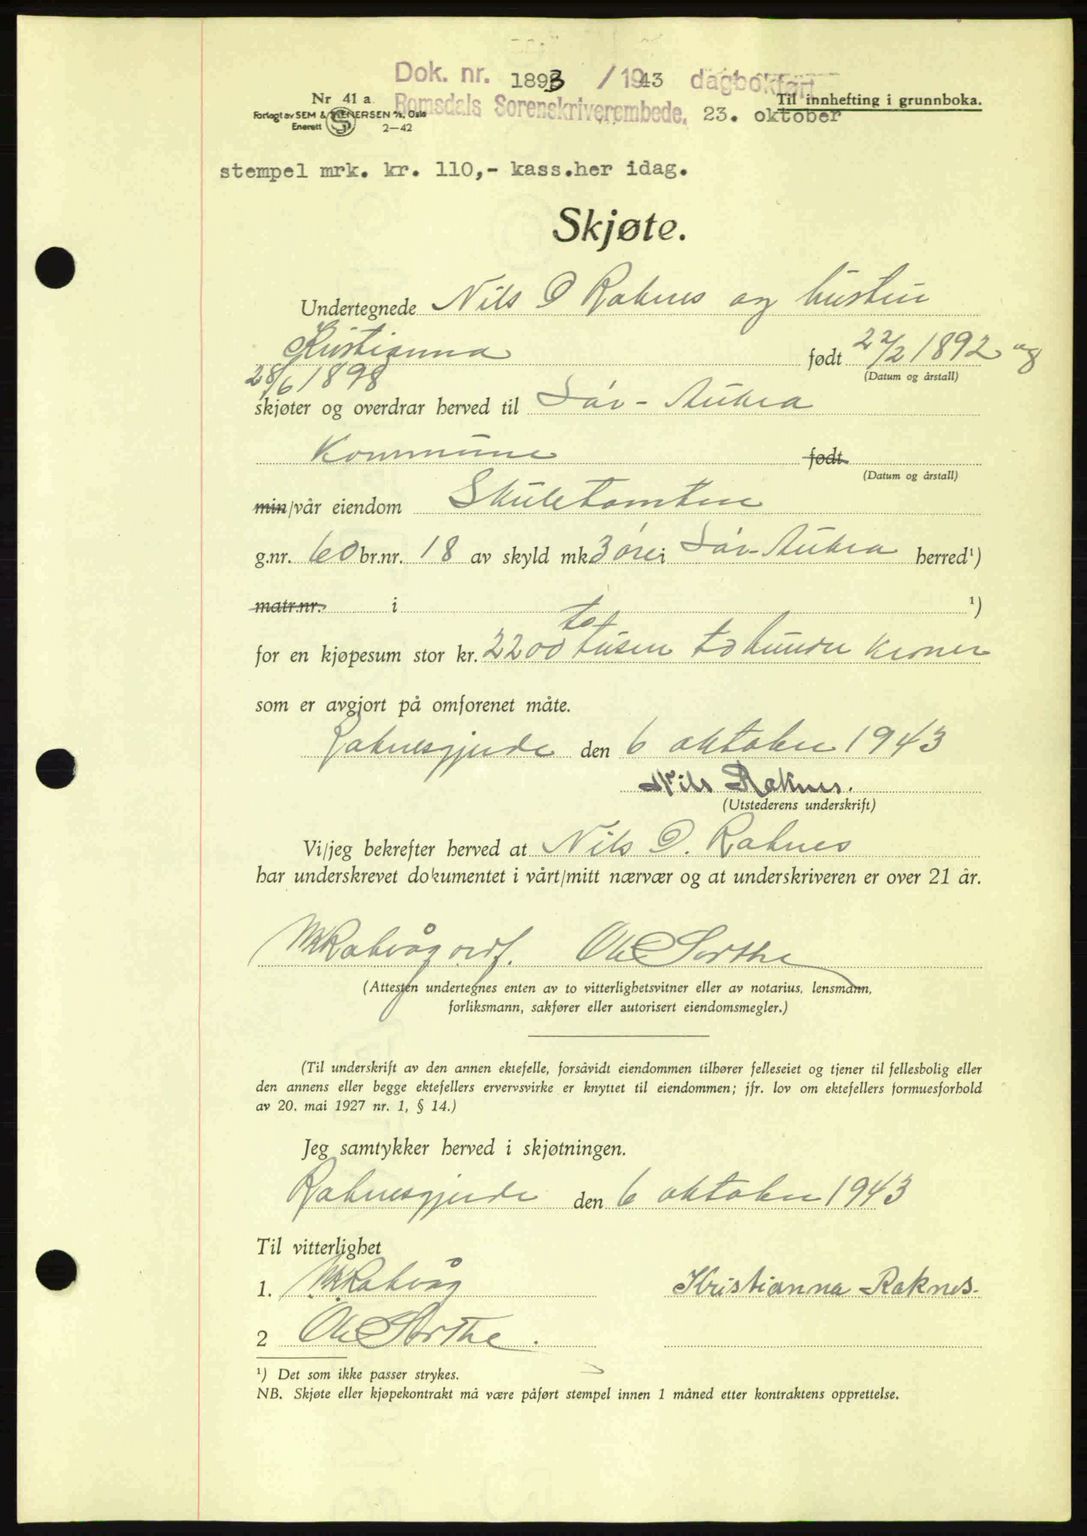 Dok. nr. 1893 / 1943 dagbokført
Nr 41 a
Romsdals Sorenskriverembede. 23. oktober
Til innhefting i grunnboka.
Forlagt av SEM & STENERSEN A/S, Oslo
Enerett S 2-42
stempel mrk. kr. 110,- kass.her idag.
Skjøte.
Undertegnede Nils D Raknes og hustru
Kristianna født 22/2 1892 og
28/6 1898 (Datum og årstall)
skjøter og overdrar herved til Sør-Aukra
Kommune født
(Datum og årstall)
min/vår eiendom Skuletomten
g.nr. 60 br.nr. 18 av skyld mk 3 øre i Sør-Aukra herred¹)
matr.nr. i ¹)
for en kjøpesum stor kr. 2200 to tusen to hundre kroner
som er avgjort på omforenet måte.
Raknesgjerde den 6 oktober 1943
Nils Raknes.
(Utstederens underskrift)
Vi/jeg bekrefter herved at Nils D. Raknes
har underskrevet dokumentet i vårt/mitt nærvær og at underskriveren er over 21 år.
ordf. Ole Sorthe
(Attesten undertegnes enten av to vitterlighetsvitner eller av notarius, lensmann,
forliksmann, sakfører eller autorisert eiendomsmegler.)
(Til underskrift av den annen ektefelle, forsåvidt eiendommen tilhører felleseiet og tjener til fellesbolig eller
den annens eller begge ektefellers ervervsvirke er knyttet til eiendommen; jfr. lov om ektefellers formuesforhold
av 20. mai 1927 nr. 1, § 14.)
Jeg samtykker herved i skjøtningen.
Raknesgjerde den 6 oktober 1943
Til vitterlighet
1. Kristianna Raknes.
2 Ole Sorthe.
¹) Det som ikke passer strykes.
NB. Skjøte eller kjøpekontrakt må være påført stempel innen 1 måned etter kontraktens opprettelse.